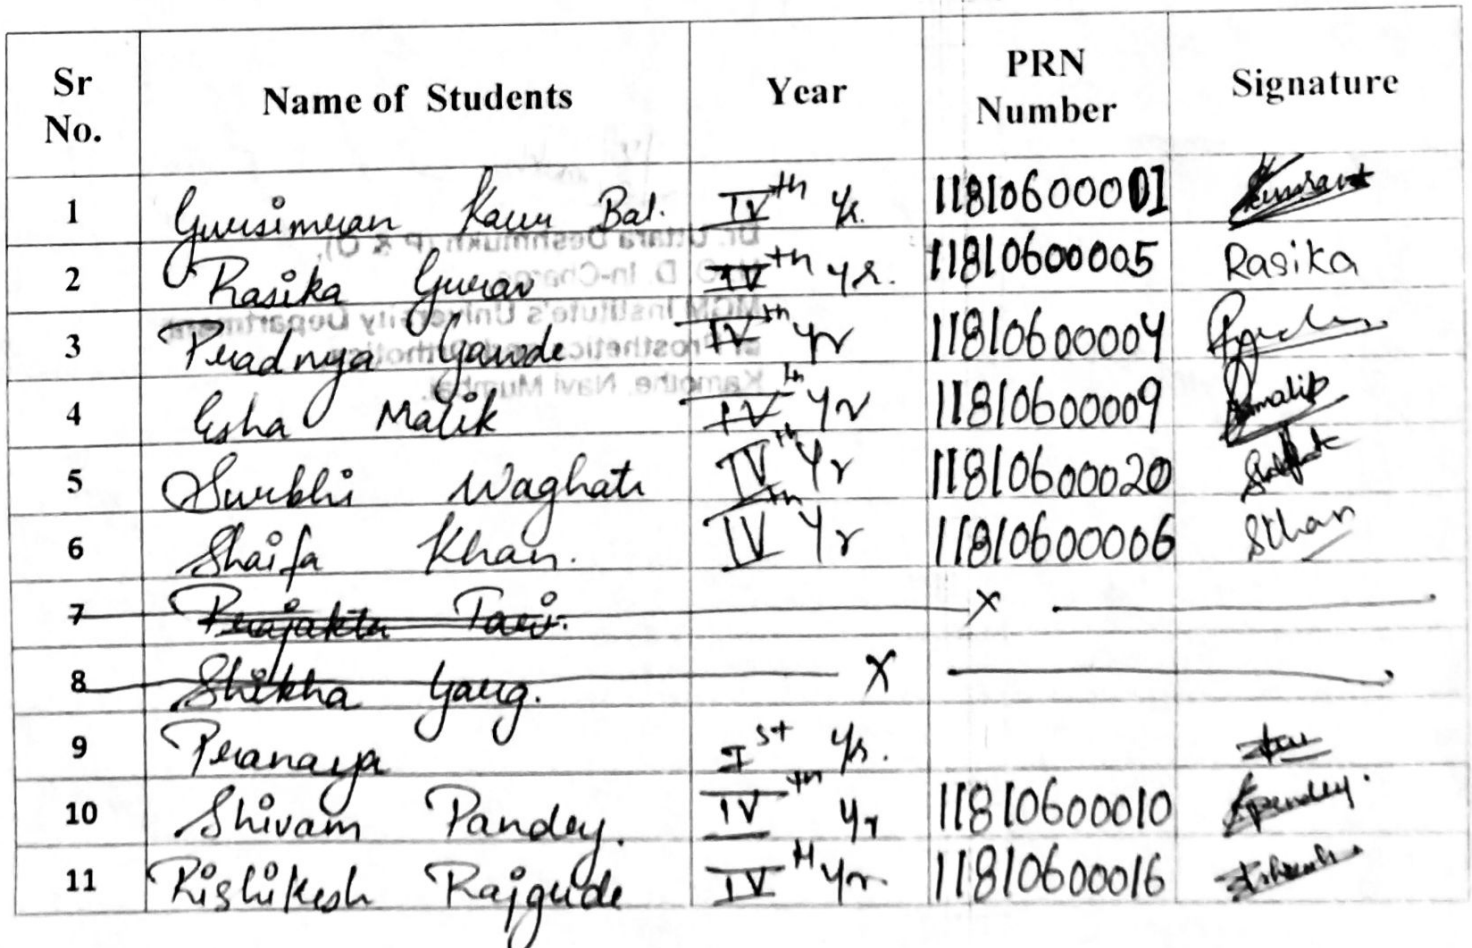 Sr No. Name of Students Year PRN Number Signature
1 Gursimran Kaur Bal. IVth Yr. 11810600001
2 Rasika Gurav IVth yr. 11810600005 Rasika
3 Pradnya Gawde IVth yr 11810600004
4 Esha Malik IVth yr 11810600009
5 Surbhi Waghate IVth Yr 11810600020
6 Shaifa Khan. IVth Yr 11810600006 SKhan
7 Prajakta X
8 Shikha Garg. X
9 Pranaya Ist Yr.
10 Shivam Pandey. IVth yr 11810600010 Pandey.
11 Rishikesh Rajgude IVth yr. 11810600016
Dr. Uttara Deshmukh (P & O),
H.O.D. In-Charge
MGM Institute's University Department
of Prosthetics and Orthotics
Kamothe, Navi Mumbai.